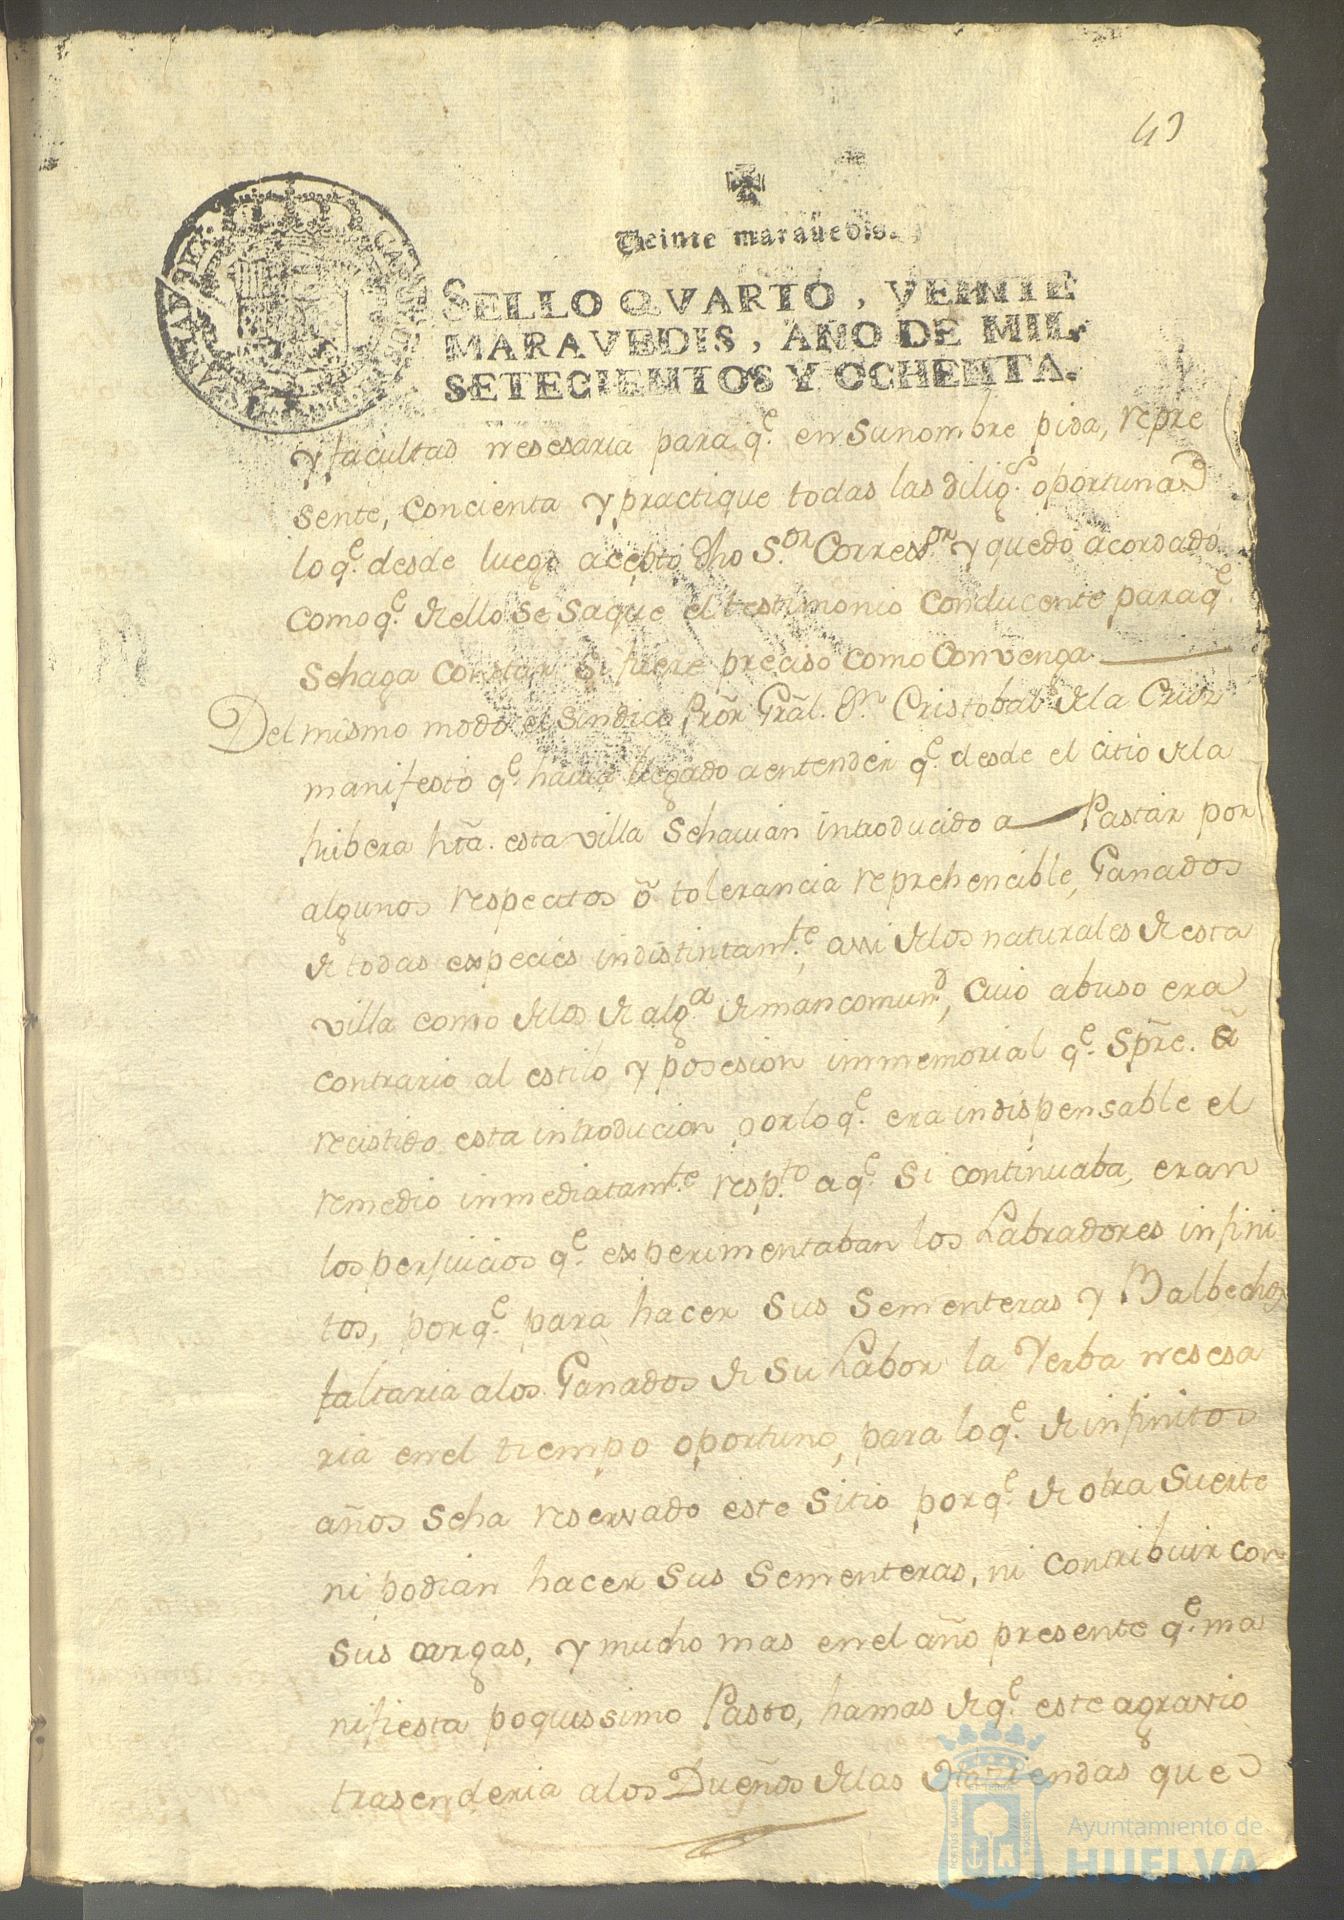 49
Veinte maravedis.
SELLO QVARTO, VEINTE
MARAVEDIS, AÑO DE MIL
SETECIENTOS Y OCHENTA.
y facultad nesesaria para q.e en Su nombre pida, repre
sente, concienta y practique todas las dilig.s oportunas
lo q.e desde luego acepto dho S.or Corress.or y quedó acordado
como q.e de ello Se Saque el testimonio conducente para q.e
Se haga constar Si fuere preciso como Convenga
Del mismo modo el Sindico Prōr Grāl. D.n Cristobal de la Cruz
manifestó q.e havia llegado a entender q.e desde el citio de la
hribera htā. esta villa Se havian introducido a Pastar por
algunos respectos ō tolerancia reprehencible, Ganados
de todas expecies indistintam.te, assi de los naturales de esta
villa como de los de alg.a de mancomun.d, cuio abuso era
contrario al estilo y posesion immemorial q.e Spr̄e. ā
recistido esta introducion por lo q.e era indispensable el
remedio inmediatam.te resp.to a q.e Si continuaba, eran
los perjuicios q.e experimentaban los Labradores infini
tos, porq.e para hacer Sus Sementeras y Balbechos
faltaria a los Ganados de Su Labor la Yerba nesesa
ria en el tiempo oportuno, para lo q.e de infinitos
años Se ha reservado este Sitio porq.e de otra Suerte
ni podian hacer Sus Sementeras, ni contribuir con
Sus cargas, y mucho mas en el año presente q.e ma
nifiesta poquissimo Pasto, hamas de q.e este agravio
trasenderia a los Dueños de las Haziendas que
Ayuntamiento de
HUELVA